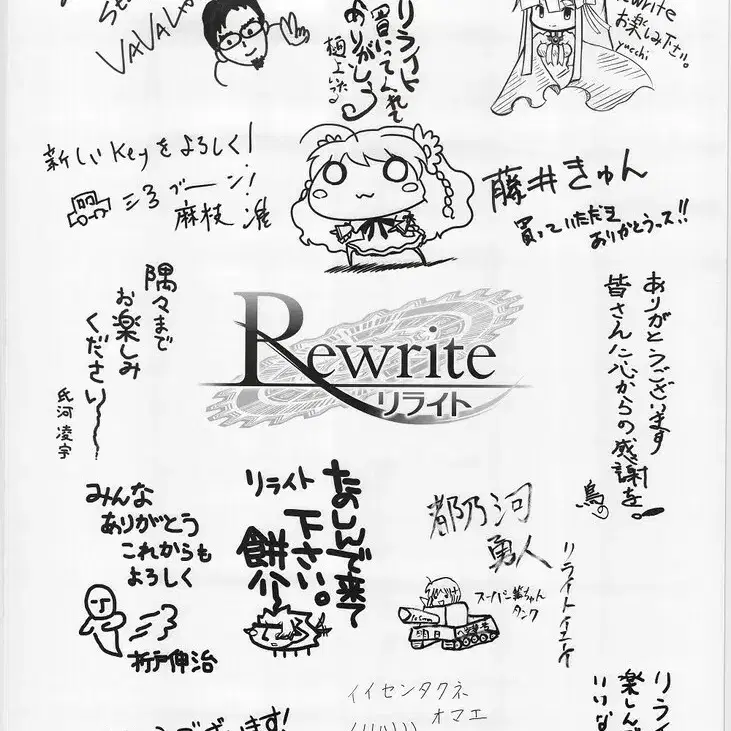 VAVA
リライト
買ってくれて
ありがとう
樋上いたる
Rewrite
お楽しみ下さい。
yucchi
新しいKeyをよろしく!
ブーン!
麻枝 准
藤井きゅん
買っていただき
ありがとうっス!!
隅々まで
お楽しみ
ください〜
氏河凌宇
Rewrite
リライト
ありがとうございます
皆さんに心からの感謝を。
鳥の
みんな
ありがとう
これからも
よろしく
折戸伸治
リライト
たのしんで来て
下さい。
餅介
都乃河
勇人
スーパー
ちゃん
タンク
リライトイエケ
イイセンタクネ
オマエ
リライ
楽しんで
いいな
ございます!